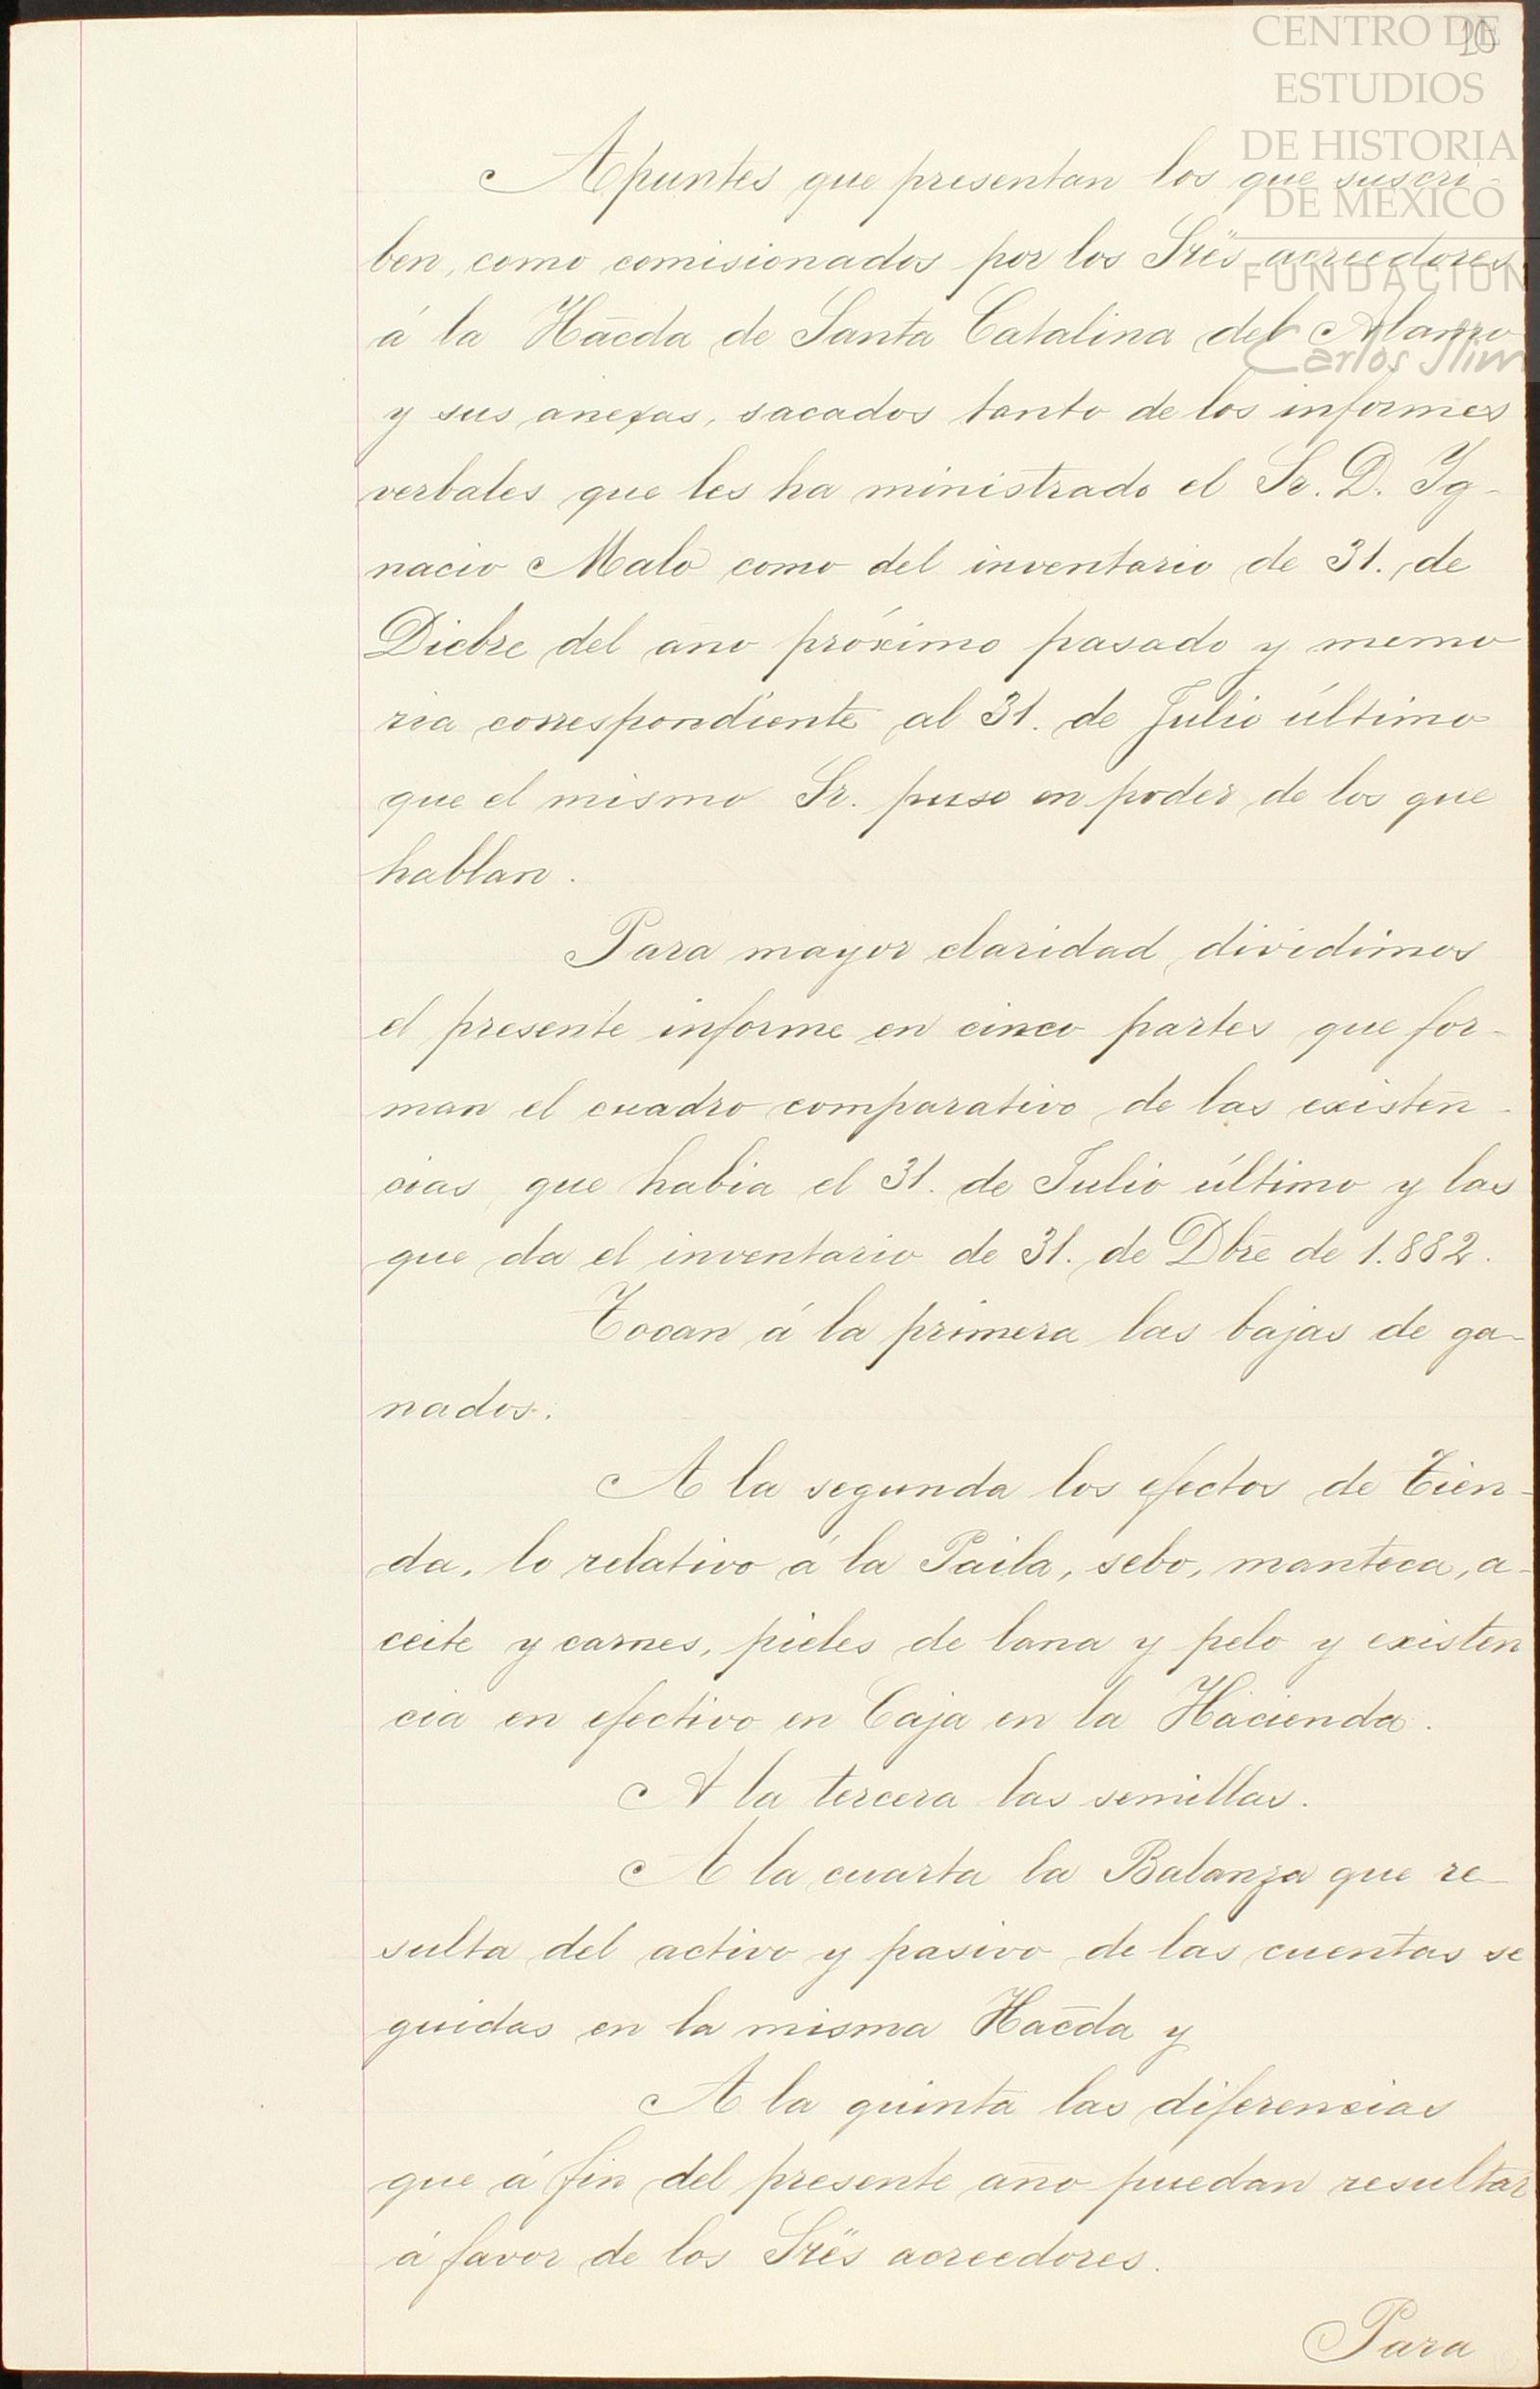 CENTRO DE
ESTUDIOS
DE HISTORIA
DE MÉXICO
FUNDACIÓN
Carlos Slim
Apuntes que presentan los que suscri-
ben, como comisionados por los Srēs acreedores
á la Hācda de Santa Catalina del Alamo
y sus anexas, sacados tanto de los informes
verbales que les ha ministrado el Sr. D. Ig-
nacio Malo como del inventario de 31. de
Dicbre del año próximo pasado y memo
ria correspondiente al 31. de Julio último
que el mismo Sr. puso en poder de los que
hablan.
Para mayor claridad dividimos
el presente informe en cinco partes que for-
man el cuadro comparativo de las existen-
cias que habia el 31. de Julio último y las
que da el inventario de 31. de Dbrē de 1.882.
Tocan á la primera las bajas de ga-
nados.
A la segunda los efectos de Tien-
da, lo relativo á la Paila, sebo, manteca, a-
ceite y carnes, pieles de lana y pelo y existen
cia en efectivo en Caja en la Hacienda.
A la tercera las semillas.
A la cuarta la Balanza que re-
sulta del activo y pasivo de las cuentas se
guidas en la misma Hac̄da y
A la quinta las diferencias
que á fin del presente año puedan resultar
á favor de los Srēs acreedores.
Para